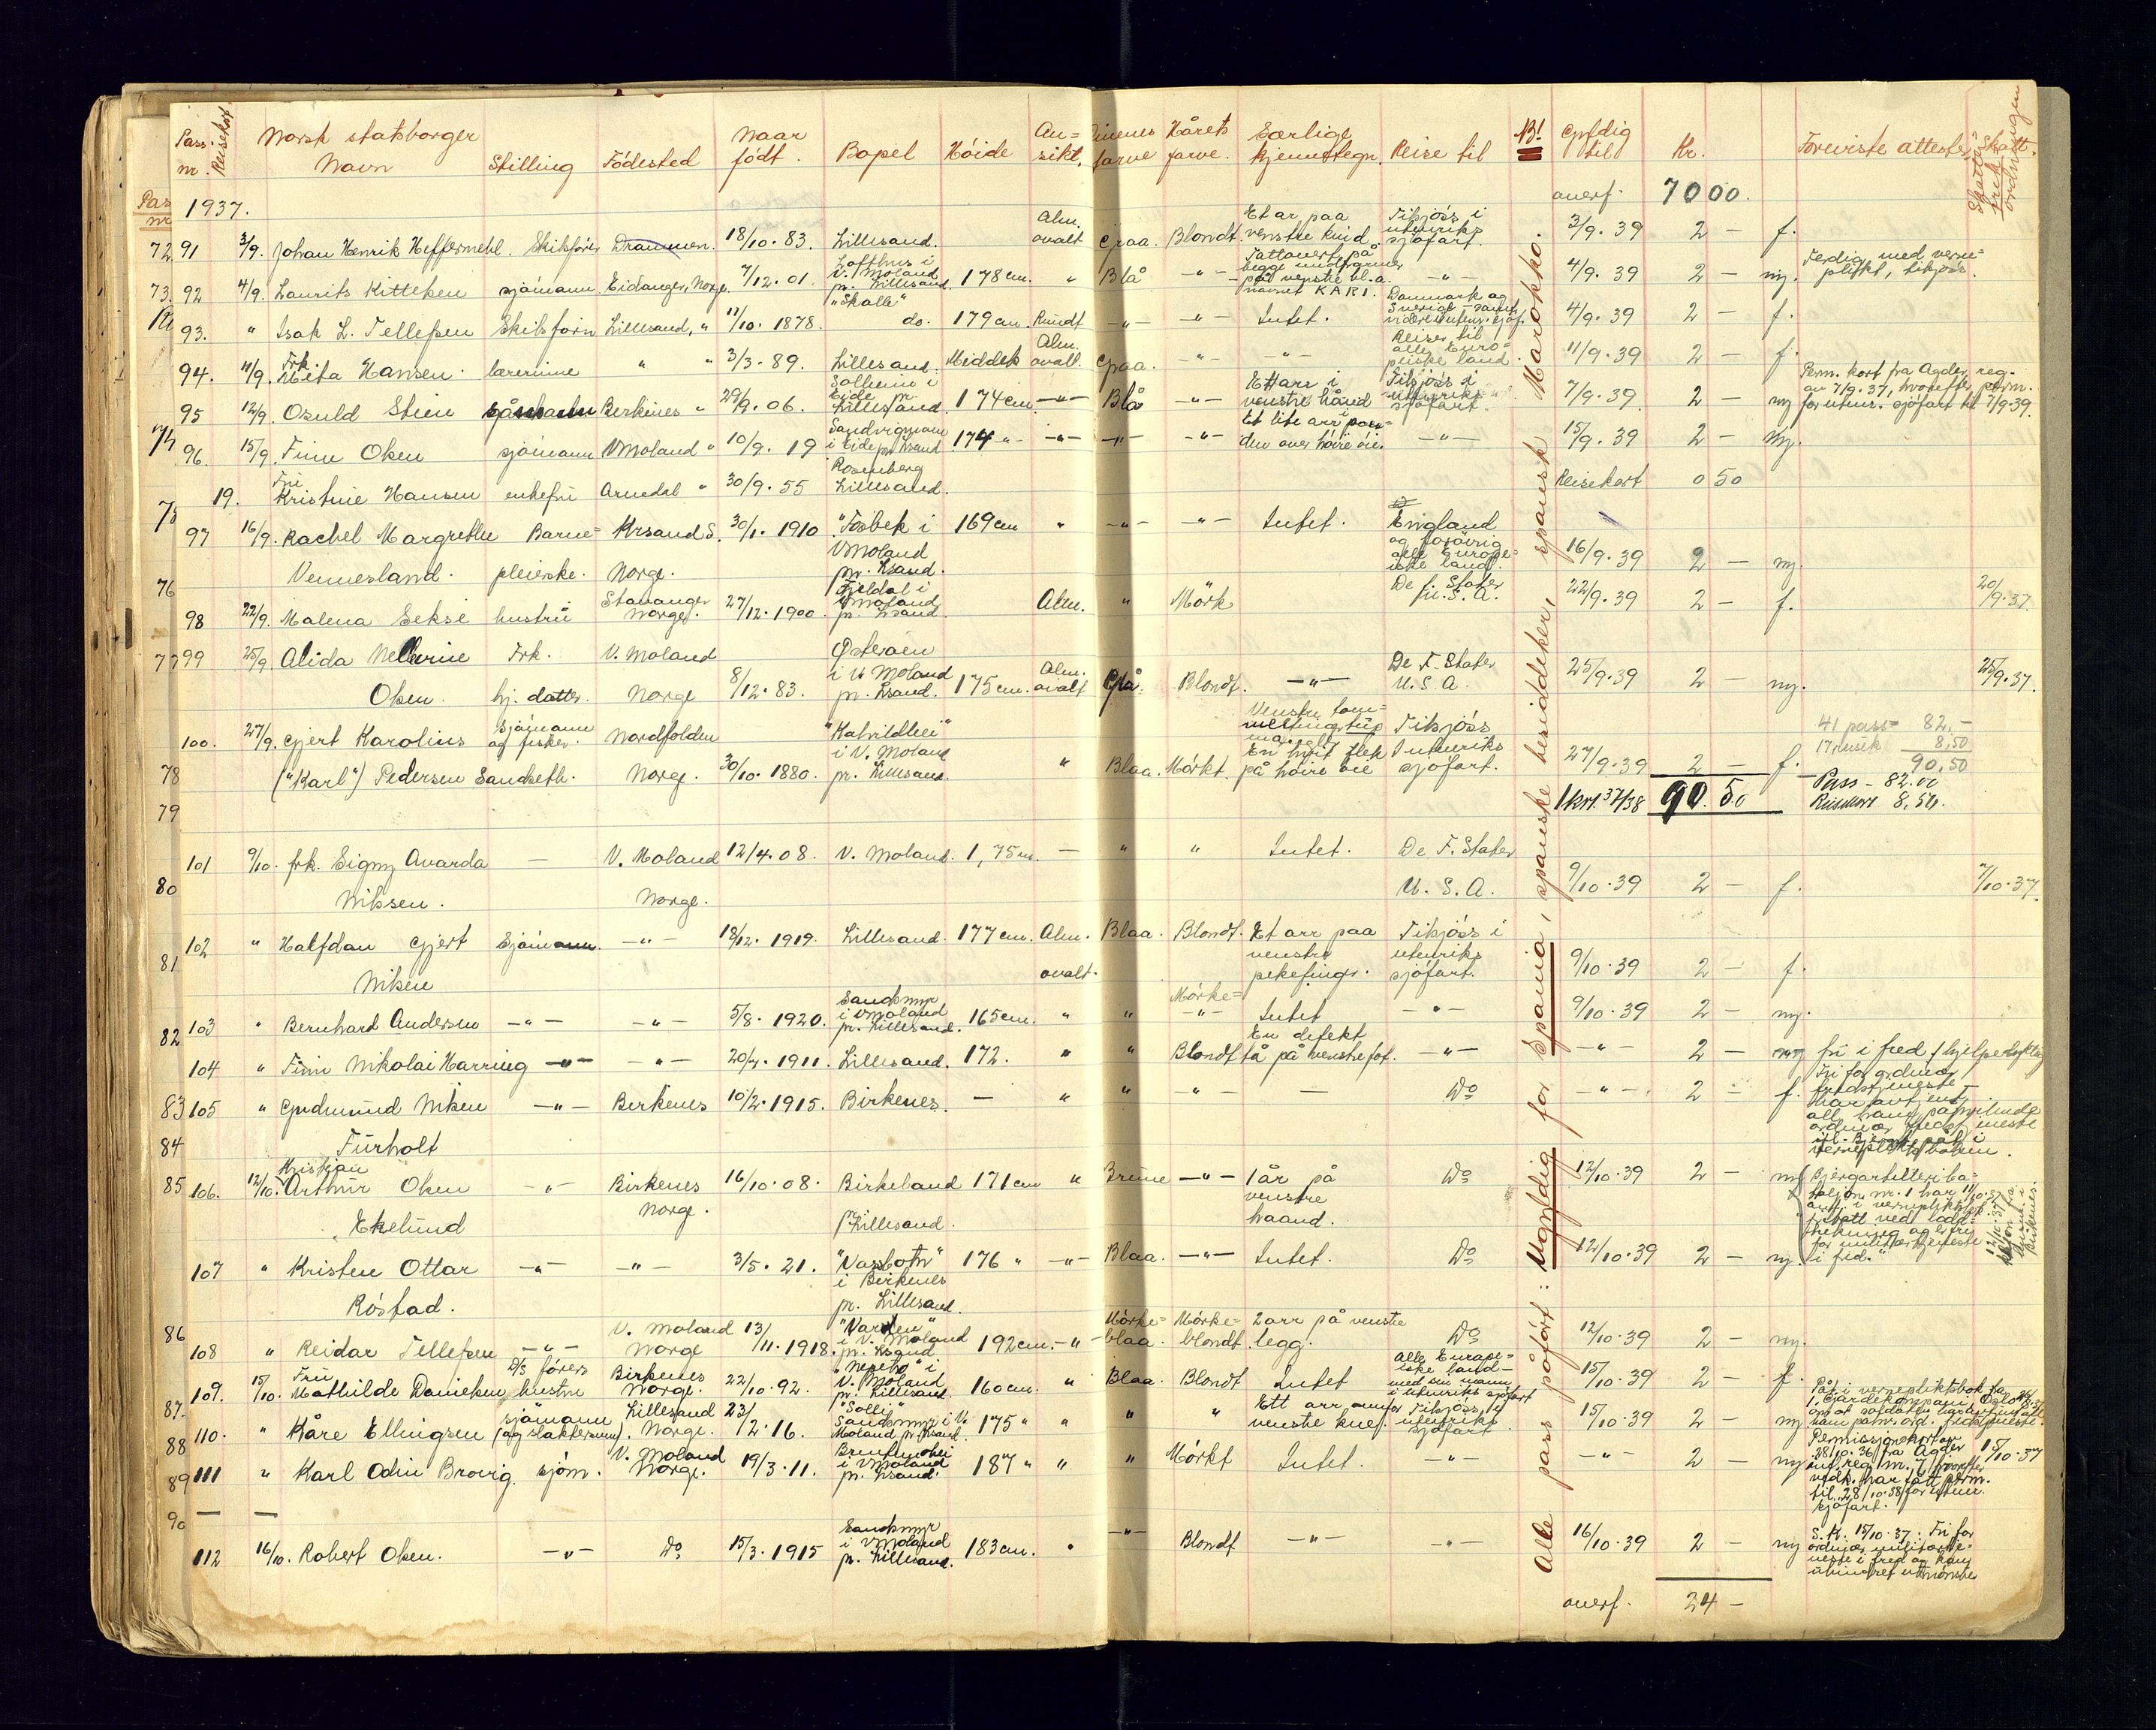 Pass nr. Reisekort Norsk statsborger Navn Stilling Födested Naar födt. Bopel Höide An=sikt. Öinenes farve Hårets farve. Særlige kjennetegn. Reise til NB! Gyldig til Kr. Foreviste attester
1937. overf. 70 00.
91 3/9. Johan Henrik Heffermehl. Skibsförer Drammen. 18/10. 83. Lillesand. Alm. ovalt Graa. Blondt. Et ar paa venstre kind Tilsjös i utenriks sjöfart. 3/9. 39 2 – f.
92 4/9. Laurits Kittelsen sjömann. Eidanger, Norge 7/12. 01. Lofthus i V. Moland pr. Lillesand 178 cm. " Blå –"– Tattovert på begge underarmer på venstre bl. a. navnet KARI. –"– 4/9. 39 2 – ny. Ferdig med verne=plikt, tilsjös.
93. " Isak L. Tellefsen Skibsförer Lillesand, " 11/10. 1878. "Skalle" do. 179 cm. Rundt –"– –"– Intet. Danmark og Sverige samt videre utenr. sjöf. 4/9. 39 2 – f.
94. 11/9. Frk. Mita Hansen. lærerinne " " 3/3. 89. Lillesand. Middels Alm. ovalt. Graa. –"– –"– Reiser til alle Euro=peiske land. 11/9. 39 2 – f.
95 12/9. Osuld Stien Birkenes " 29/9. 06. Solheim i Eide pr. Lillesand 174 cm. –"– Blå –"– Et arr i venstre hånd Tilsjös i utenriks sjöfart. 7/9. 39. 2 – ny Perm. kort fra Agder reg. av 7/9. 37, hvorefter perm. for utenr. sjöfart til 7/9. 39.
96. 15/9. Finn Olsen sjömann V Moland " 10/9. 19 i Eide pr. Lsand. 174 " –"– –"– –"– Et lite arr i pan=den over höire öie. –"– 15/9. 39 2 – Ny.
19. Fru Kristine Hansen enkefru Arendal " 30/9. 55 Rosenberg Lillesand. Reisekort 0 50
97 16/9. Rachel Margrethe Vennesland. Barne=pleierske. Krsand S. Norge. 30/1. 1910 "Fosbek i V Moland pr. Lsand. 169 cm " –"– –"– Intet. England og forövrig alle Europe=iske land. 16/9. 39 2 – ny.
98 22/9. Malena Sekse hustru Stavanger Norge. 27/12. 1900. V Moland pr. Lsand. Alm. " Mörk De f. Stater U. S. A. 22/9. 39 2 – f. 20/9. 37.
99 25/9 Alida Olsen. Frk. hj. datter. V. Moland Norge 8/12. 83. i V Moland pr. Lsand. 175 cm. Alm. ovalt Grå. Blondt. –"– De F. Stater U. S. A. 25/9. 39 2 – ny. 25/9. 37.
100. 27/9. Gjert Karolius ("Karl") Pedersen Sandseth. sjömann og fisker. Nordfolden Norge. 30/10. 1880. i V. Moland pr. Lillesand. " Blaa. Mörkt. Venstre tom=melfingertup En hvit flek på höire öie Tilsjös utenriks sjöfart. 27/9. 39 2 – f.
41 pass= 82.–
17 reisek 8,50
90,50
1 krt. 37/38 90. 50 Pass – 82.00
Reisekort 8,50.
101 9/10. frk. Signy Avarda Nilsen. – V. Moland Norge. 12/4. 08. V. Moland. 1,75 m. – " " Intet. De F. Stater U. S. A. 9/10. 39 2 – f. 7/10. 37.
102 " Halfdan Gjert Nilsen Sjömann. –"– 18/12. 1919. Lillesand. 177 cm. Alm. ovalt. Blaa. Blondt. Et arr paa venstre pekefinger. Tilsjös i utenriks sjöfart. 9/10. 39 2 – f.
103 " Bernhard Andersen –"– –"– 5/8. 1920. Sandsmyr i V Moland pr. Lillesand. 165 cm. " " Mörke= –"– Intet –"– 9/10. 39 2 – ny.
104 " Finn Nikolai Harring –"– –"– 20/4. 1911. Lillesand. 172. " " Blondt En defekt tå på venstre fot. –"– –"– 2 – ny fri i fred
105 " Gudmund Nilsen Furholt –"– Birkenes 10/2. 1915. Birkenes. – " " –"– – Do –"– 2 – f. Fri for ordinær fredstjeneste
106. 12/10. Kristian Arthur Olsen Ekelund –"– Birkenes Norge. 16/10. 08. Birkeland pr Lillesand. 171 cm " Brune –"– 1 år på venstre haand. Do 12/10. 39 2 – ny Bjergartilleriba=taljon nr. 1 har 11/10. 37
107 " Kristen Ottar Röstad. –"– –"– 3/5. 21. "Vasbotn" i Birkenes pr. Lillesand. 176 " –"– Blaa. –"– Intet. Do 12/10. 39 2 – ny. i fred."
108 " Reidar Tellefsen –"– V. Moland Norge 13/11. 1918. i V. Moland pr. Lsand 192 cm. –"– Mörke=blaa. Mörke=blondt 2 arr på venstre legg. Do 12/10. 39 2 – ny.
109. 15/10. Fru Mathilde Danielsen D/S förers hustru Birkenes Norge. 22/10. 92. i V. Moland pr. Lillesand. 160 cm. " Blaa. Blondt Intet Alle Europe=iske land – med sin mann i utenriks sjöfart 15/10. 39 2 – f.
110. " Kåre Ellingsen sjömann Lillesand Norge. 23/12. 16. "Solli" Sandsmyr i V. Moland pr. Lsand. 175 " " " " Ett arr venstre knef. Tilsjös, utenriks sjöfart 15/10. 39 2 – ny
111 " Karl Odin Brovig. sjöm. V. Moland Norge. 19/3. 11. i V Moland pr. Lsand. 187 " " " Mörkt Intet. –"– –"– 2 – ny Permissjonskort av 28/10. 36 fra Agder 15/10. 37
— —
112 16/10. Robert Olsen. –"– Do 15/3. 1915 Sandsmyr i V Moland pr. Lillesand. 183 cm. " –"– Blondt –"– –"– 16/10. 39 2 – ny S. K. 15/10. 37: Fri for ordinær militærtje=neste i fred og kan uhindret utmönstre
overf. 24 –
Alle pass påfört: Ugyldig for Spania, spanske besiddelser, spansk Marokko.
72
73.
76
77
78
79
80
81
82
83
84
85
86
87.
88
89
90